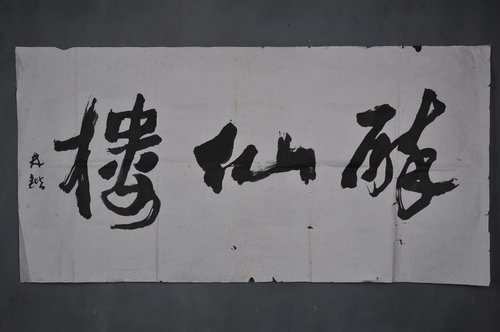 醉仙楼